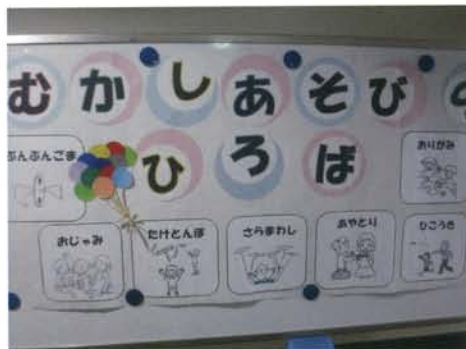 むかしあそびの
ひろば
ぶんぶんごま
おりがみ
おじゃみ
たけとんぼ
さらまわし
あやとり
ひこうき